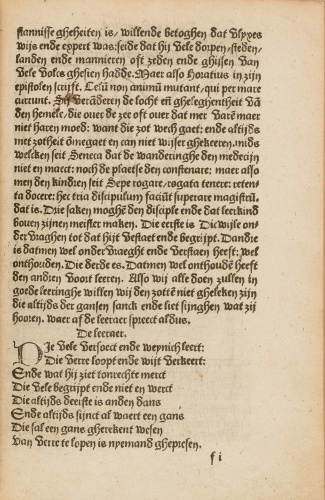 stannisse gheheiten is/ willende betoghen dat Ulyxes
wijs ende expert was: seide dat hij vele dorpen/ steden/
landen ende mannieren oft zeden ende ghijsen van
vele volks ghesien hadde. Maer also Horatius in zijn
epistolen scrijft. Celū non animū mutant/ qui per mare
currunt. Sij verāderen de locht eñ gheleghentheit vā
den hemele/ die over de zee oft over dat mer varē maer
niet haren moed: want die zot wech gaet: ende altijds
met zotheit omegaet en can niet wijser ghekeeren. mids
welcken seit Seneca dat de wanderinghe den medecijn
niet en maect: noch de plaetse den constenare: maer also
men den kindren seit Sepe rogare/ rogata tenere: reten/
ta docere: hec tria discipulum faciūt superare magistrū.
dat is. Drie saken moghē den disciple ende dat leerkind
boven zijnen meister maken. Die eerste is Dicwijle on/
dervraghen tot dat hijt vestaet ende begrijpt. Dandre
is datmen wel ondervraeght ende verstaen heeft: wel
onthouden. Die derde es. Datmen wel onthoudē heeft
den andren voort leeren. Also wij alle doen zullen in
goede leeringhe willen wij den zottē niet gheleken zijn
die altijds der gansen sanck ende liet singhen wat zij
hooren. waer af de leeraer spreect aldus.
De leeraer.
Die vele versoect ende weynich leert:
Die verre loopt ende wijt verkeert:
Ende wat hij ziet tonrechte merct
Die vele begrijpt ende niet en werct
Die altijds deerste is anden dans
Ende altijds sijnct al waert een gans
Die sal een gans gherekent wesen
Van verre te lopen is nyemand ghepresen.
f i